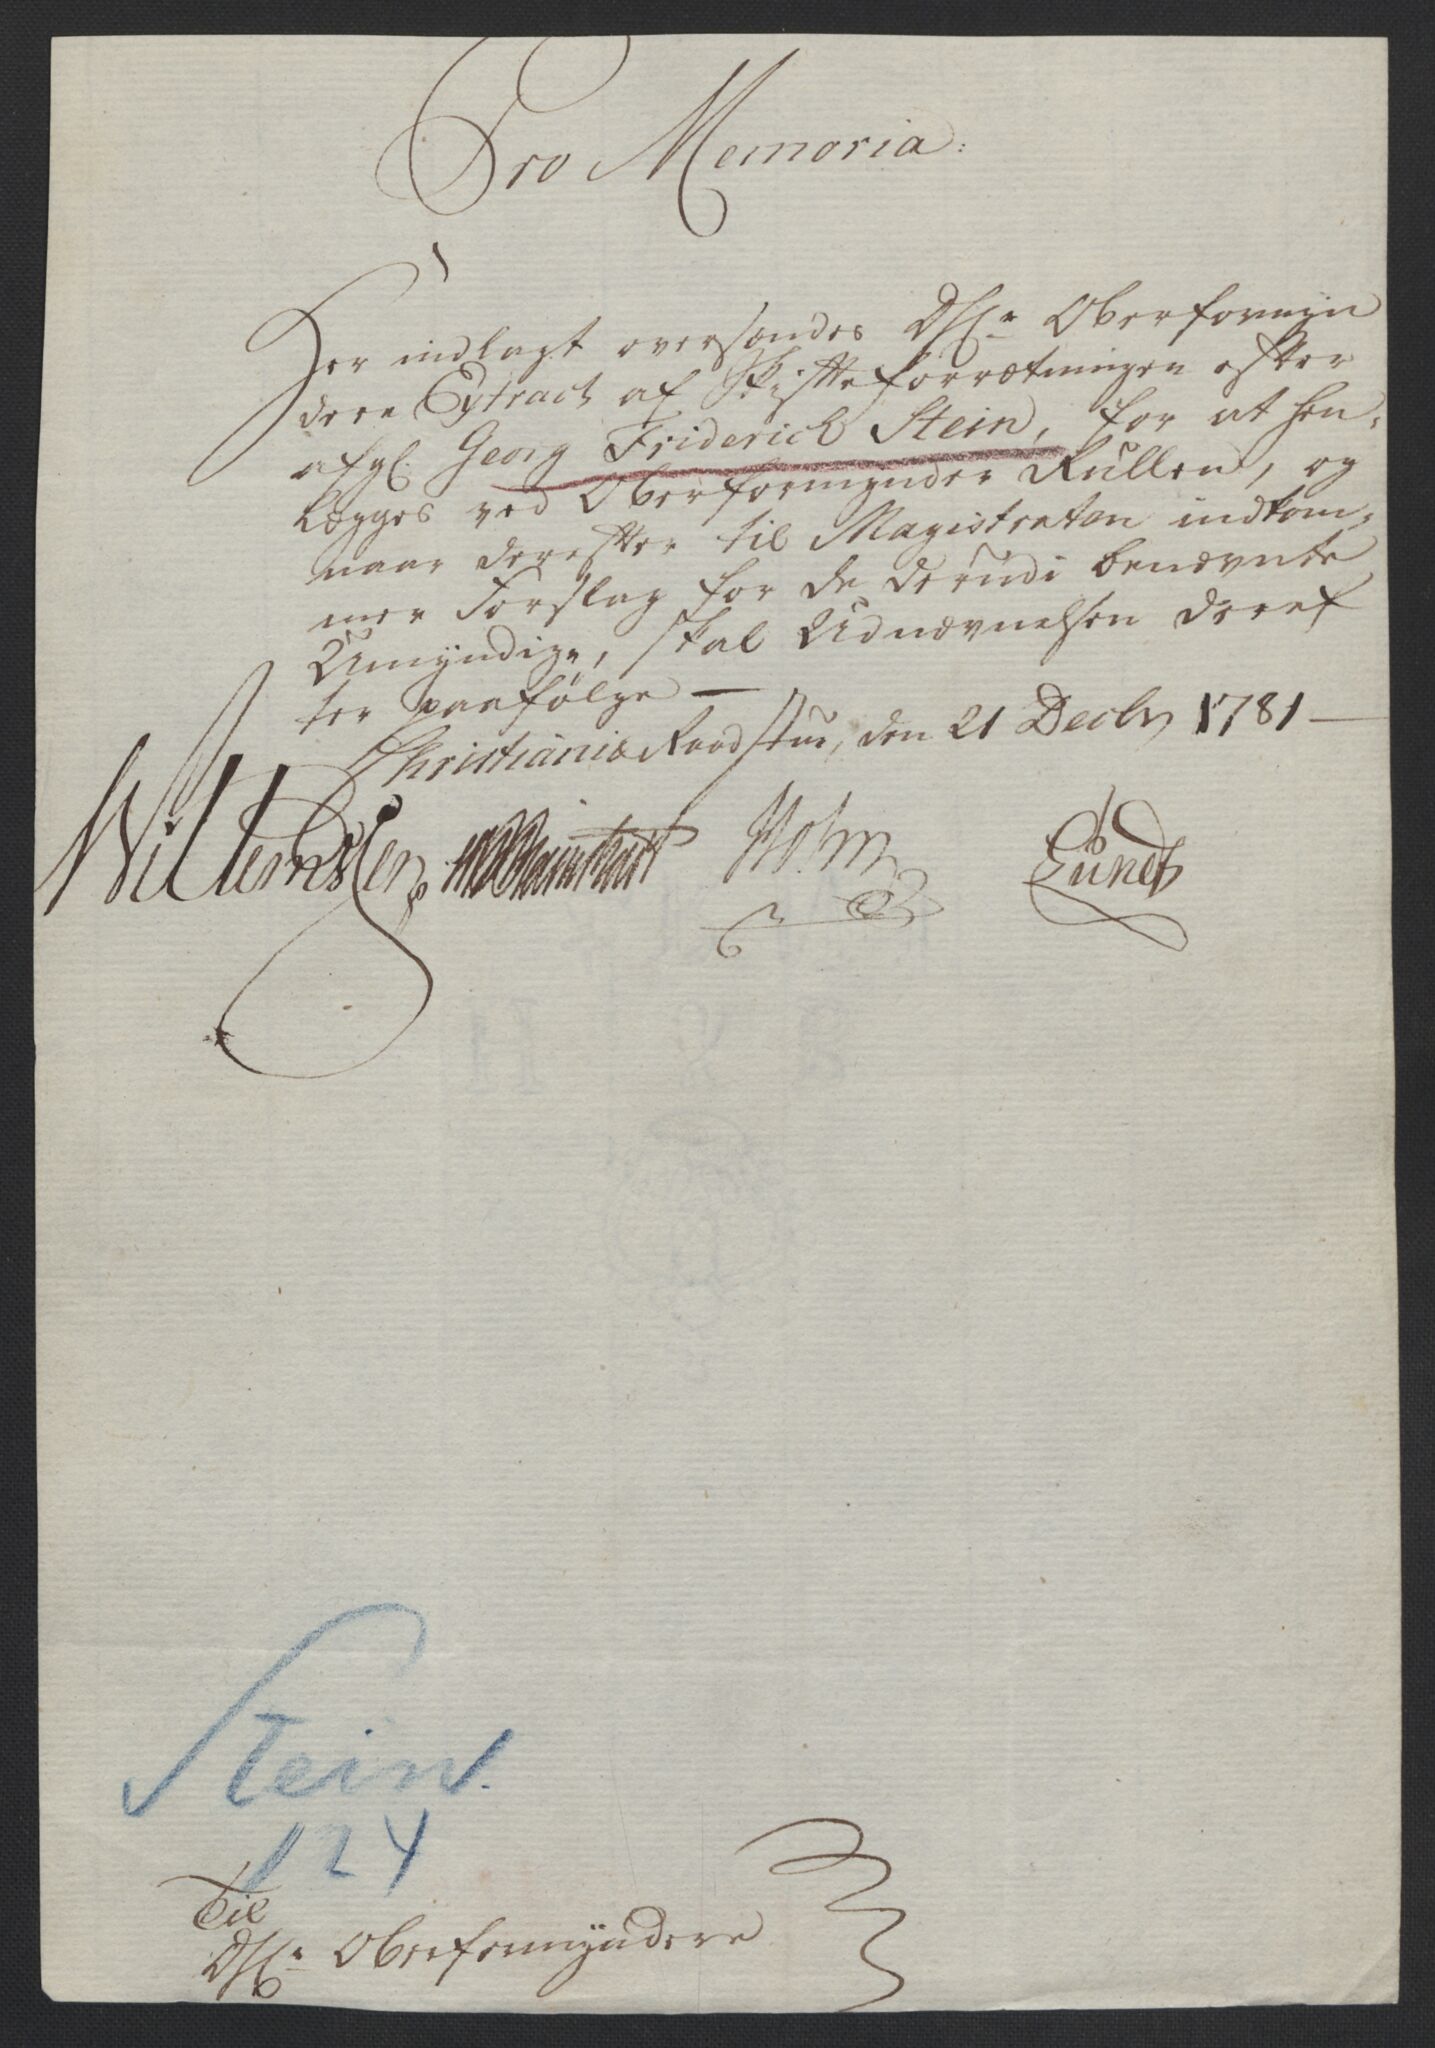 Pro Memoria:
Her indlagt oversendes DHr. Oberformyn
dere Extract af Skifteforrætningen efter
afgl. Georg Friderich Stein, for at hen,
lægges ved Oberformynder Rullen, og
naar derefter til Magistraten indkom,
mer Forslag for de derudi benævnte
Umyndige, skal Udnævnelsen deref
ter paafølge —
Christiania Raadstue, den 21 Decbr 1781 —
Willemssen Holm Lund
Stein.
124
Til
DHr. Oberformyndere